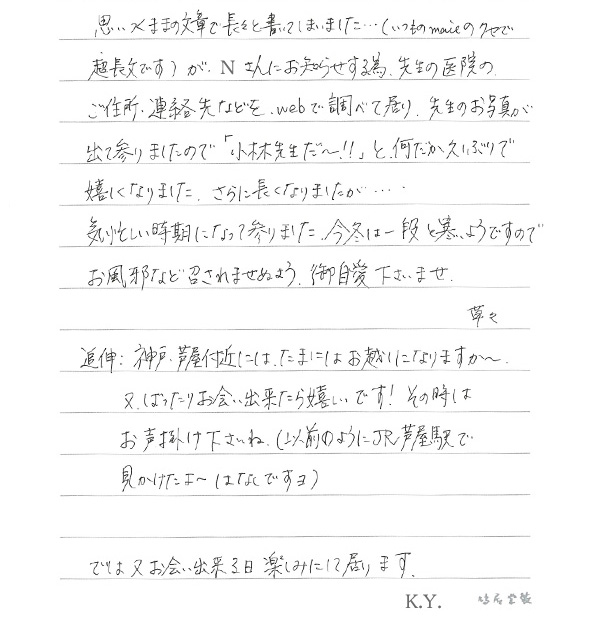 思いつくままの文章で長々と書いてしまいました…(いつものmailのクセで
超長文です)が、Nさんにお知らせする為、先生の医院の
ご住所、連絡先などを、webで調べて居り、先生のお写真が
出て参りましたので「小林先生だ〜!!」と、何だか久しぶりで
嬉しくなりました、さらに長くなりましたが‥‥
気忙しい時期になって参りました、今冬は一段と寒いようですので
お風邪など召されませぬよう、御自愛下さいませ、
草々
追伸:神戸、芦屋付近には、たまにはお越しになりますか〜、
又、ばったりお会い出来たら嬉しいです!その時は
お声掛け下さいね、(以前のようにJR芦屋駅で
見かけたよ〜はなしですヨ)
では又お会い出来る日楽しみにして居ります、
K.Y.